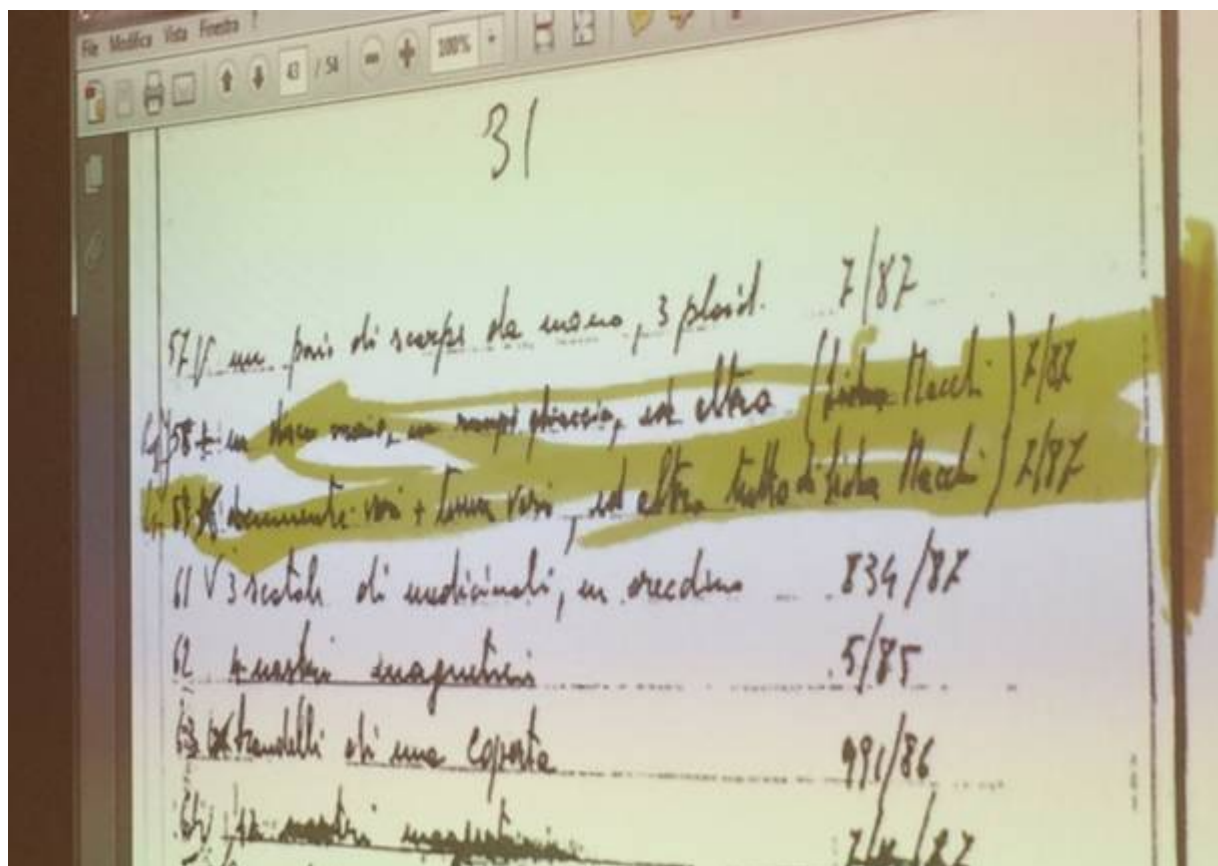 File Modifica Vista Finestra ?
43 / 54 100%
31
57 V un paio di scarpe da uomo, 3 plaid. 7/87
58 un, un, ed altro (Lidia Macchi) 7/87
documenti vari +, ed altro tutto di Lidia Macchi) 7/87
61 V 3 scatole di medicinali, un orecchino 834/87
62 4 nastri magnetici 5/85
63 brandelli di una coperta 991/86
nastri magnetici